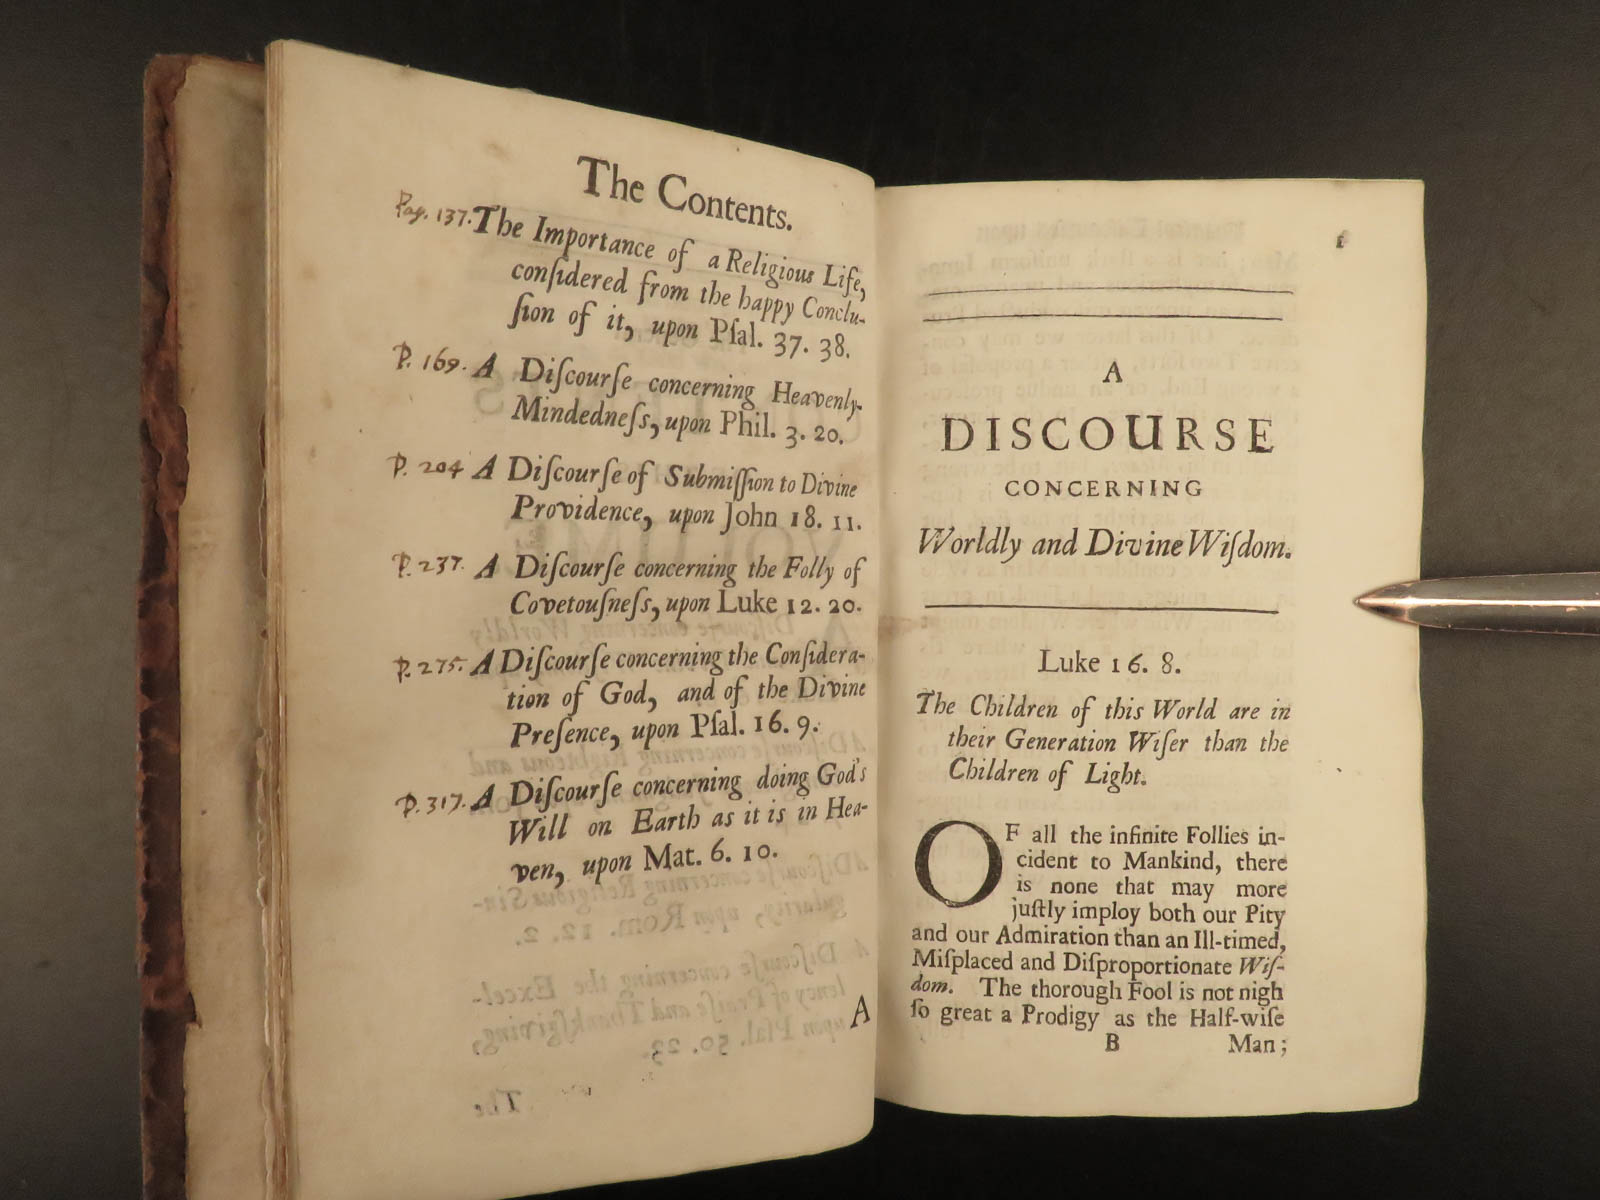 The Contents.
Pag. 137. The Importance of a Religious Life,
conſidered from the happy Conclu-
ſion of it, upon Pſal. 37. 38.
P. 169. A Diſcourſe concerning Heavenly-
Mindedneſs, upon Phil. 3. 20.
P. 204 A Diſcourſe of Submiſſion to Divine
Providence, upon John 18. 11.
P. 237. A Diſcourſe concerning the Folly of
Covetouſneſs, upon Luke 12. 20.
P. 275. A Diſcourſe concerning the Conſidera-
tion of God, and of the Divine
Preſence, upon Pſal. 16. 9.
P. 317. A Diſcourſe concerning doing God's
Will on Earth as it is in Hea-
ven, upon Mat. 6. 10.
A
1
A
DISCOURSE
CONCERNING
Worldly and Divine Wiſdom.
Luke 16. 8.
The Children of this World are in
their Generation Wiſer than the
Children of Light.
OF all the infinite Follies in-
cident to Mankind, there
is none that may more
juſtly imploy both our Pity
and our Admiration than an Ill-timed,
Miſplaced and Diſproportionate Wiſ-
dom. The thorough Fool is not nigh
ſo great a Prodigy as the Half-wiſe
B Man;